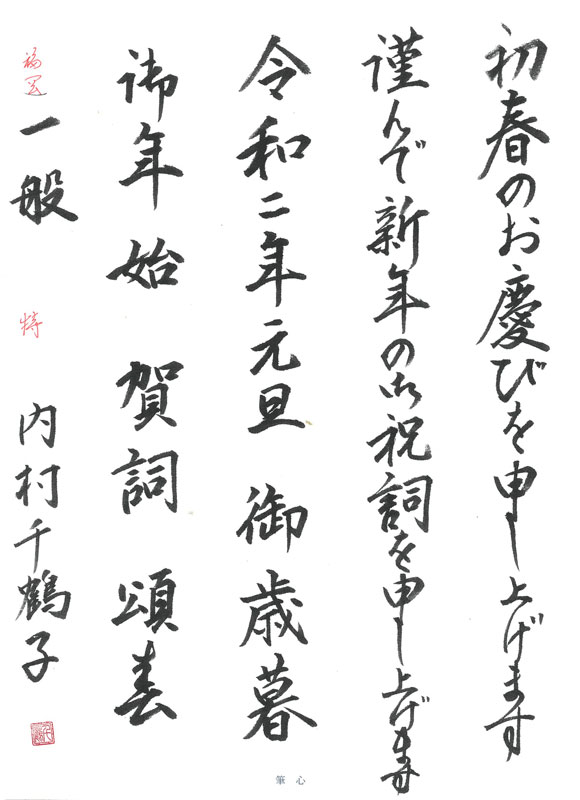 初春のお慶びを申し上げます
謹んで新年の御祝詞を申し上げます
令和二年元旦 御歳暮
御年始 賀詞 頌春
福岡 一般 特 内村千鶴子
筆心